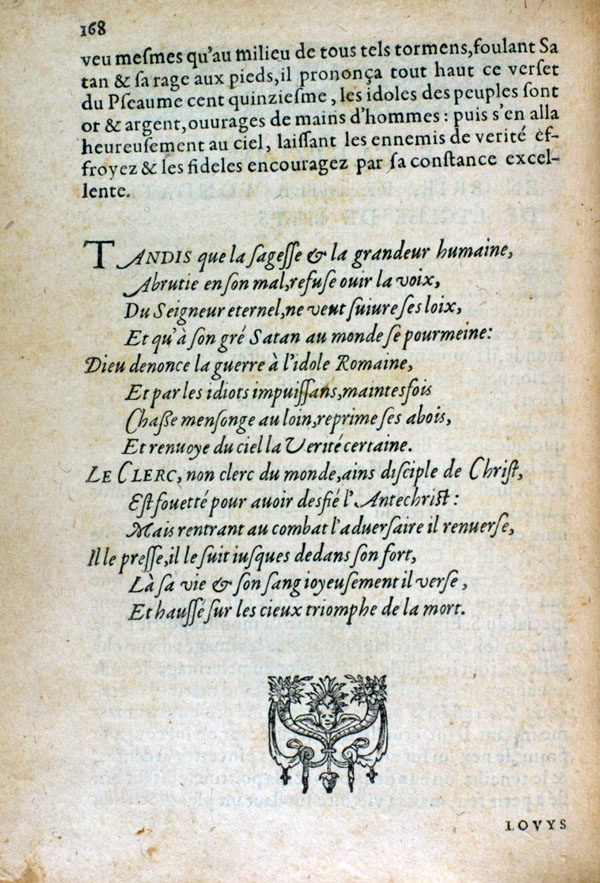 168
veu meſmes qu'au milieu de tous tels tormens, foulant Sa
tan & ſa rage aux pieds, il prononça tout haut ce verſet
du Pſeaume cent quinzieſme, les idoles des peuples ſont
or & argent, ouurages de mains d'hommes: puis s'en alla
heureuſement au ciel, laiſſant les ennemis de verité ef-
froyez & les fideles encouragez par ſa conſtance excel-
lente.
TANDIS que la ſageſſe & la grandeur humaine,
Abrutie en ſon mal, refuſe ouir la voix,
Du Seigneur eternel, ne veut ſuiure ſes loix,
Et qu'à ſon gré Satan au monde ſe pourmeine:
Dieu denonce la guerre à l'idole Romaine,
Et par les idiots impuiſſans, maintesfois
Chaſſe menſonge au loin, reprime ſes abois,
Et renuoye du ciel la Verité certaine.
LE CLERC, non clerc du monde, ains diſciple de Chriſt,
Eſt fouetté pour auoir desfié l'Antechriſt:
Mais rentrant au combat l'aduerſaire il renuerſe,
Il le preſſe, il le ſuit iuſques dedans ſon fort,
Là ſa vie & ſon ſang ioyeuſement il verſe,
Et hauſſé ſur les cieux triomphe de la mort.
LOVYS